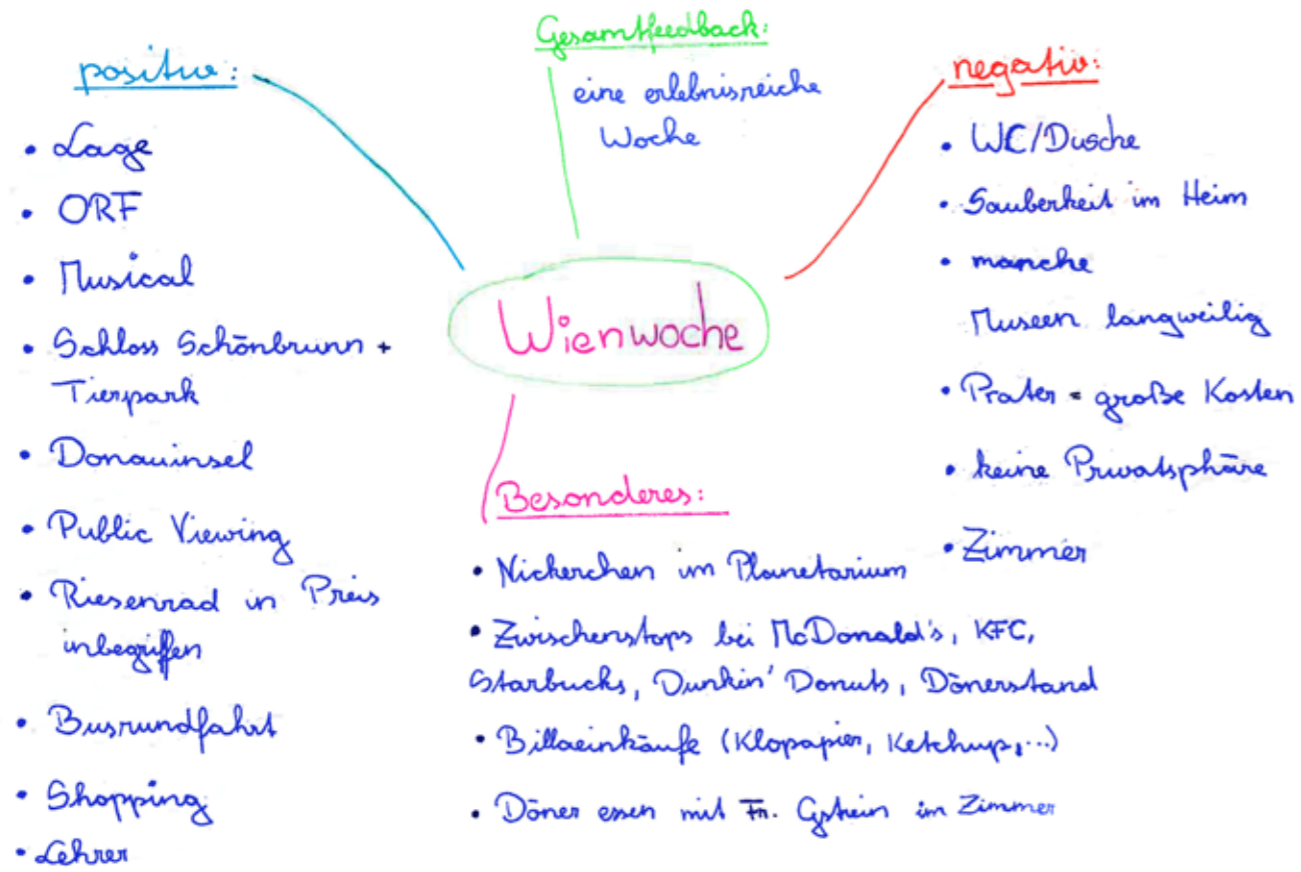 Gesamtfeedback:
eine erlebnisreiche
Woche
positiv:
• Lage
• ORF
• Musical
• Schloss Schönbrunn +
Tierpark
• Donauinsel
• Public Viewing
• Riesenrad in Preis
inbegriffen
• Busrundfahrt
• Shopping
• Lehrer
Wienwoche
negativ:
• WC/Dusche
• Sauberkeit im Heim
• manche
Museen langweilig
• Prater = große Kosten
• keine Privatsphäre
• Zimmer
Besonderes:
• Nickerchen im Planetarium
• Zwischenstops bei McDonald's, KFC,
Starbucks, Dunkin' Donuts, Dönerstand
• Billaeinkäufe (Klopapier, Ketchup,...)
• Döner essen mit Fr. Gstrein im Zimmer